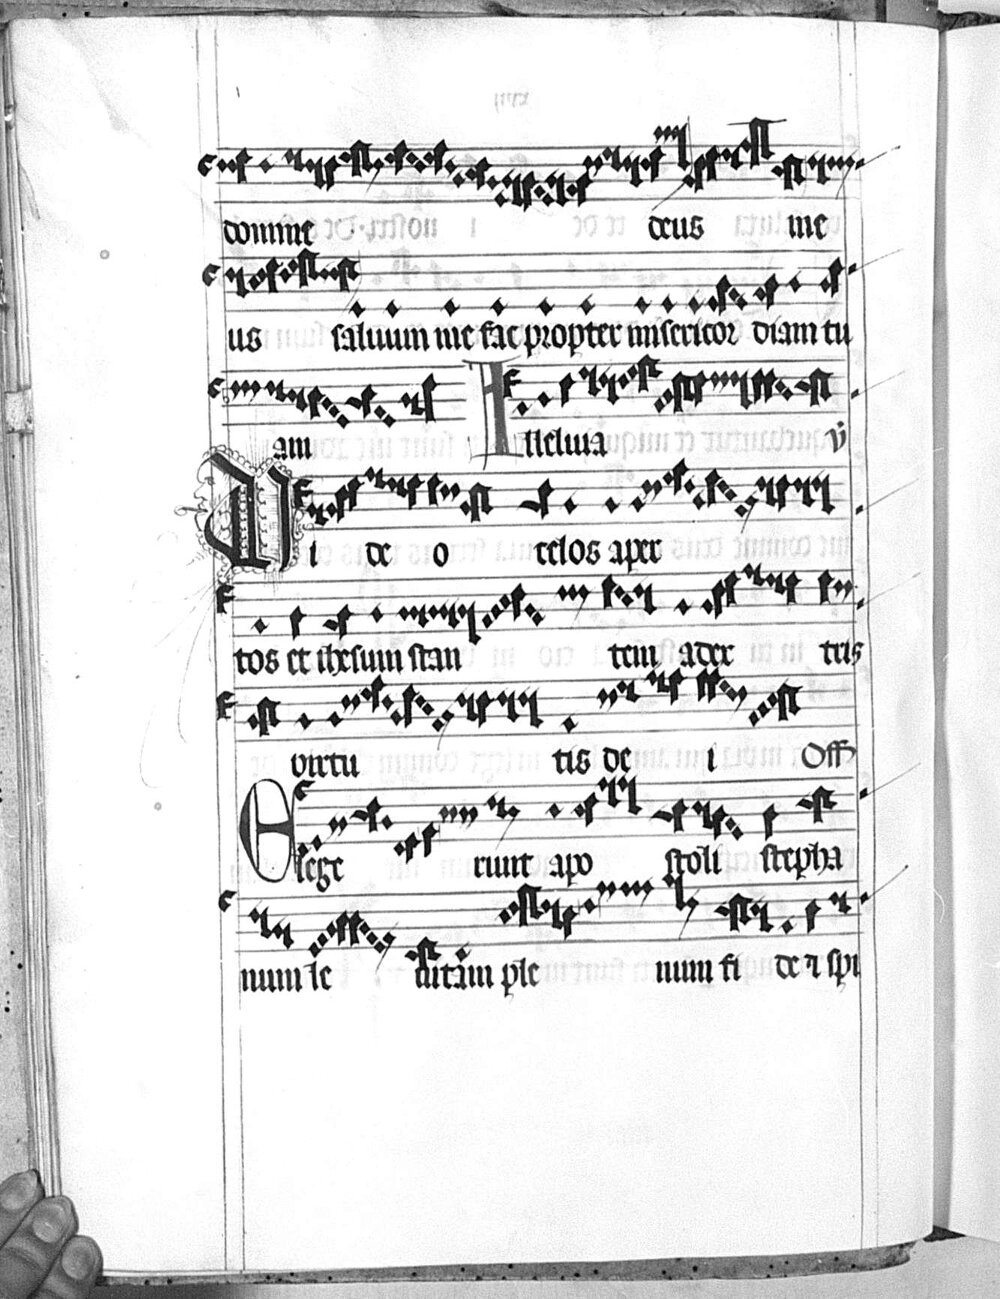 domine deus me
us saluum me fac propter misericor diam tu
am Alleluia v̄
Vi de o celos aper
tos et ihesum stan tem adex tris
virtu tis de i Off
Elege runt apo stoli stepha
num le uitam ple num fi de ⁊ spi